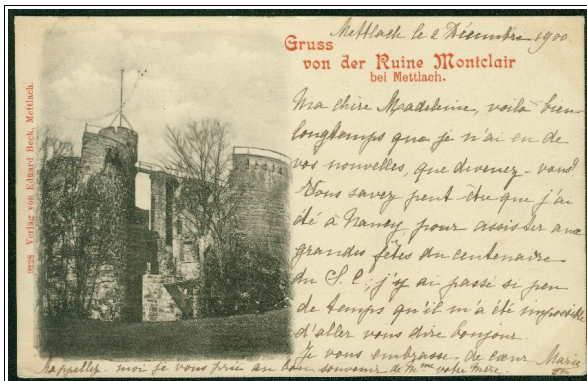 Mettlach le 2 Décembre 1900.
Gruss
von der Ruine Montclair
bei Mettlach.
Ma chère Madeleine, voilà bien
longtemps que je n'ai eu de
vos nouvelles, que devenez-vous?
Vous savez peut être que j'ai
été à Nancy pour assister aux
grandes fêtes du centenaire
du S. C., j'y ai passé si peu
de temps qu'il m'a été impossible
d'aller vous dire bonjour.
Je vous embrasse de cœur Marie
Rappellez-moi je vous prie au bon souvenir de Mme votre mère.
2228 Verlag von Eduard Beck, Mettlach.